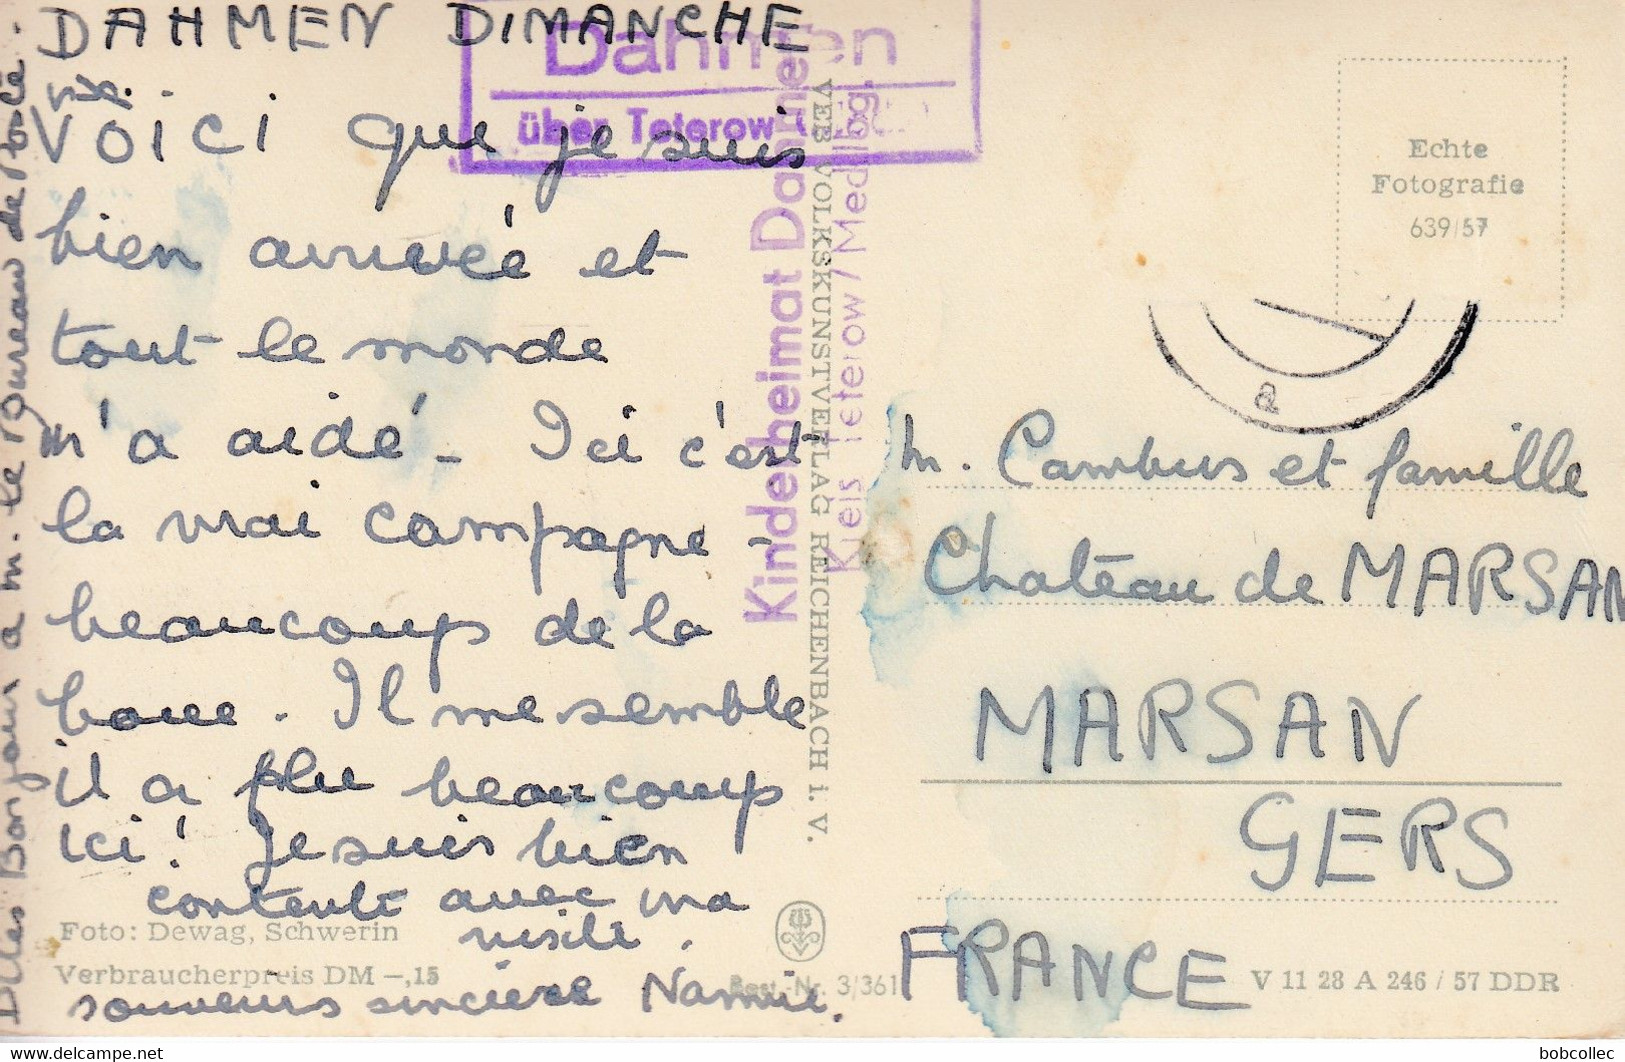 DAHMEN DIMANCHE
VOICI que je suis
bien arrivée et
tout le monde
m'a aidé - Ici c'est
la vrai campagne -
beaucoups de la
boue. Il me semble
il a plu beaucoups
ici! Je suis bien
contente avec ma
visite.
souvenirs sincère
Dites Bonjour a M. le Bureau de
Dahmen
über Teterow
Kinderheimat Dahmen
Kreis Teterow / Mecklbg.
VEB VOLKSKUNSTVERLAG REICHENBACH i. V.
Foto: Dewag, Schwerin
Verbraucherpreis DM —,15
Best.-Nr. 3/361
Echte
Fotografie
639/57
a
M. Cambus et famille
Chateau de MARSAN
MARSAN
GERS
FRANCE
V 11 28 A 246 / 57 DDR
delcampe.net
bobcollec